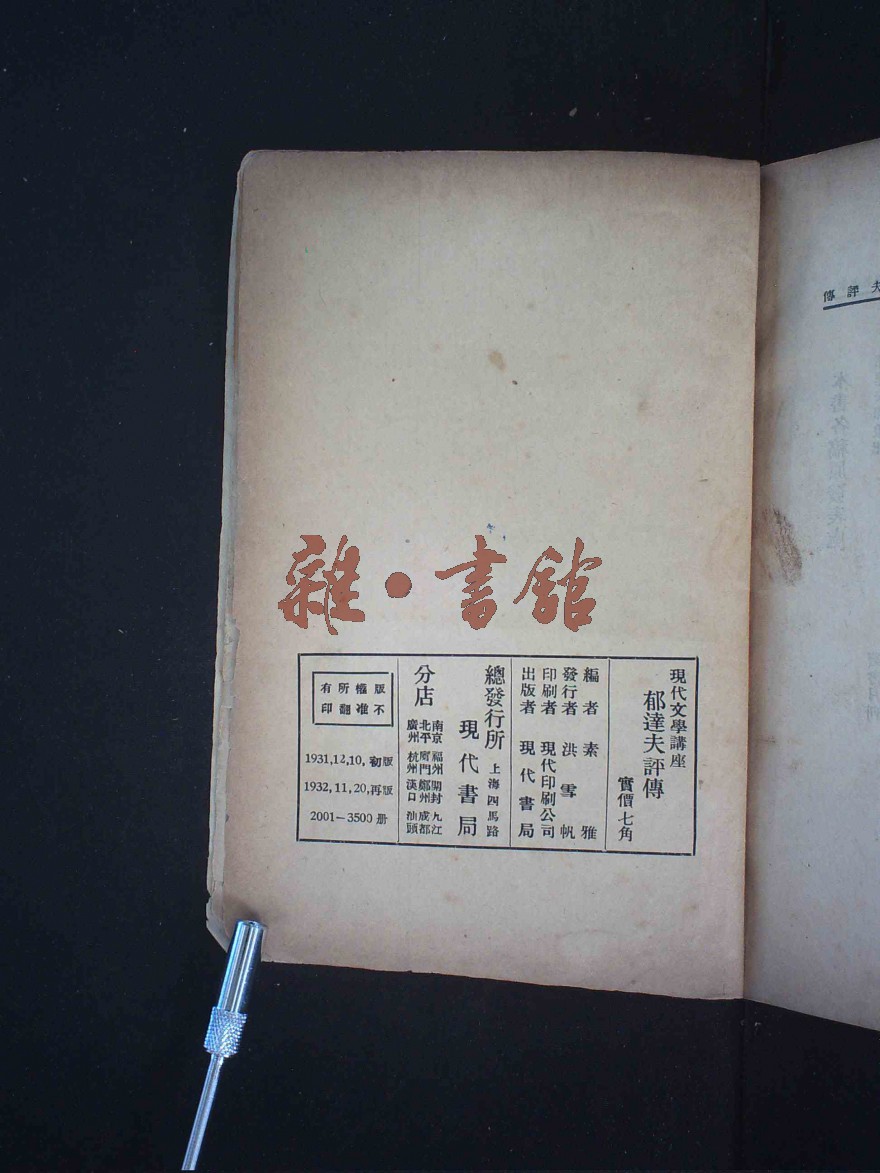 雜·書館
現代文學講座
郁達夫評傳
實價七角
編者 素雅
發行者 洪雪帆
印刷者 現代印刷公司
出版者 現代書局
總發行所 上海四馬路
現代書局
分店
南京 福州 開封 九江
北平 廈門 鄭州 成都
廣州 杭州 漢口 汕頭
版權所有
不准翻印
1931,12,10,初版
1932,11,20,再版
2001—3500 册
夫評傳